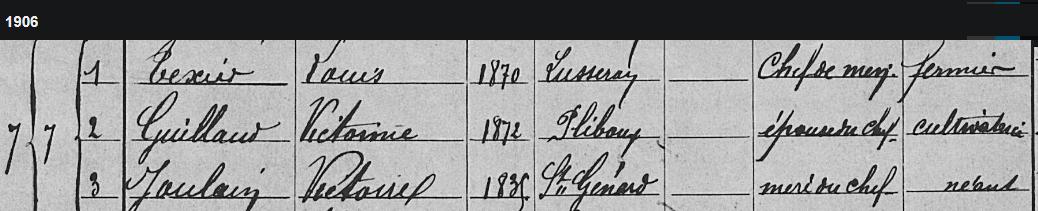 1906
1 Texier Louis 1870 Lusseray Chef de men. fermier
7 7 2 Guillaud Victorine 1872 Pliboux épouse du chef cultivatrice
3 Joulain Victoire 1835 St Génard mère du chef néant